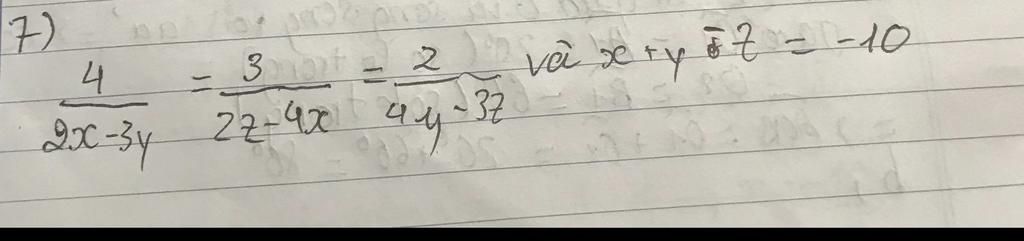 7)
4/(2x-3y) = 3/(2z-4x) = 2/(4y-3z) và x+y-z = -10